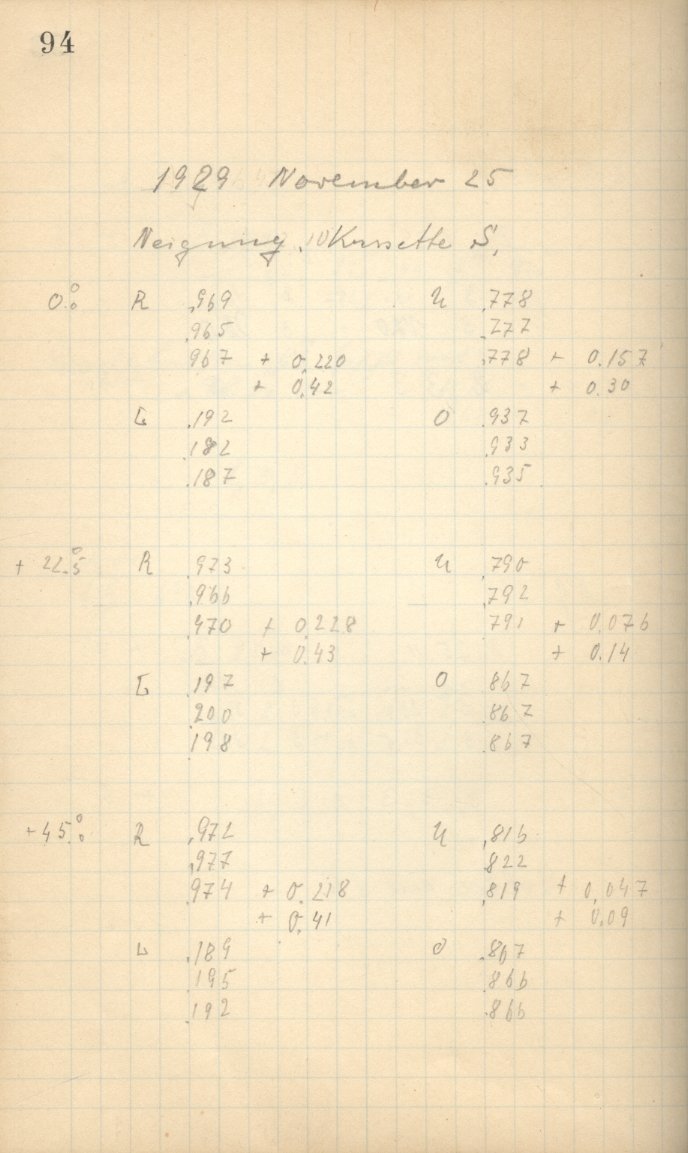 94
1929 November 25
Neigung. 10 Kassette S,
0.°0 R .969 U .778
.965 .777
.967 + 0.220 .778 + 0.157
+ 0.42 + 0.30
L .192 O .937
.182 .933
.187 .935
+ 22.°5 R .973 U .790
.966 .792
.970 + 0.228 .791 + 0.076
+ 0.43 + 0.14
L .197 O .867
.200 .867
.198 .867
+45.°0 R .972 U .816
.977 .822
.974 + 0.218 .819 + 0.047
+ 0.41 + 0.09
L .189 O .867
.195 .866
.192 .866